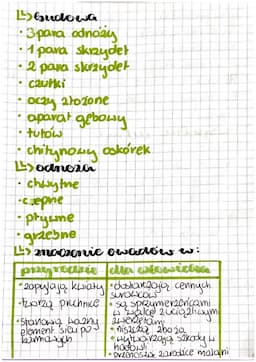 budowa
• 3 para odnóży
• 1 para skrzydeł
• 2 para skrzydeł
• czułki
• oczy złożone
• aparat gębowy
• tułów
• chitynowy oskórek
odnóża
• chwytne
• czepne
• pływne
• grzebne
znaczenie owadów w:
przyrodzie dla człowieka
• zapylają kwiaty
• tworzą próchnicę
• stanowią ważny
element sieci po
karmowych
• dostarczają cennych
surowców
• są sprzymierzeńcami
w walce z uciążliwymi
zwierzętami
• niszczą zboża
• wytwarzają szkody w
hodowli
• przenoszą zarodźce malarii